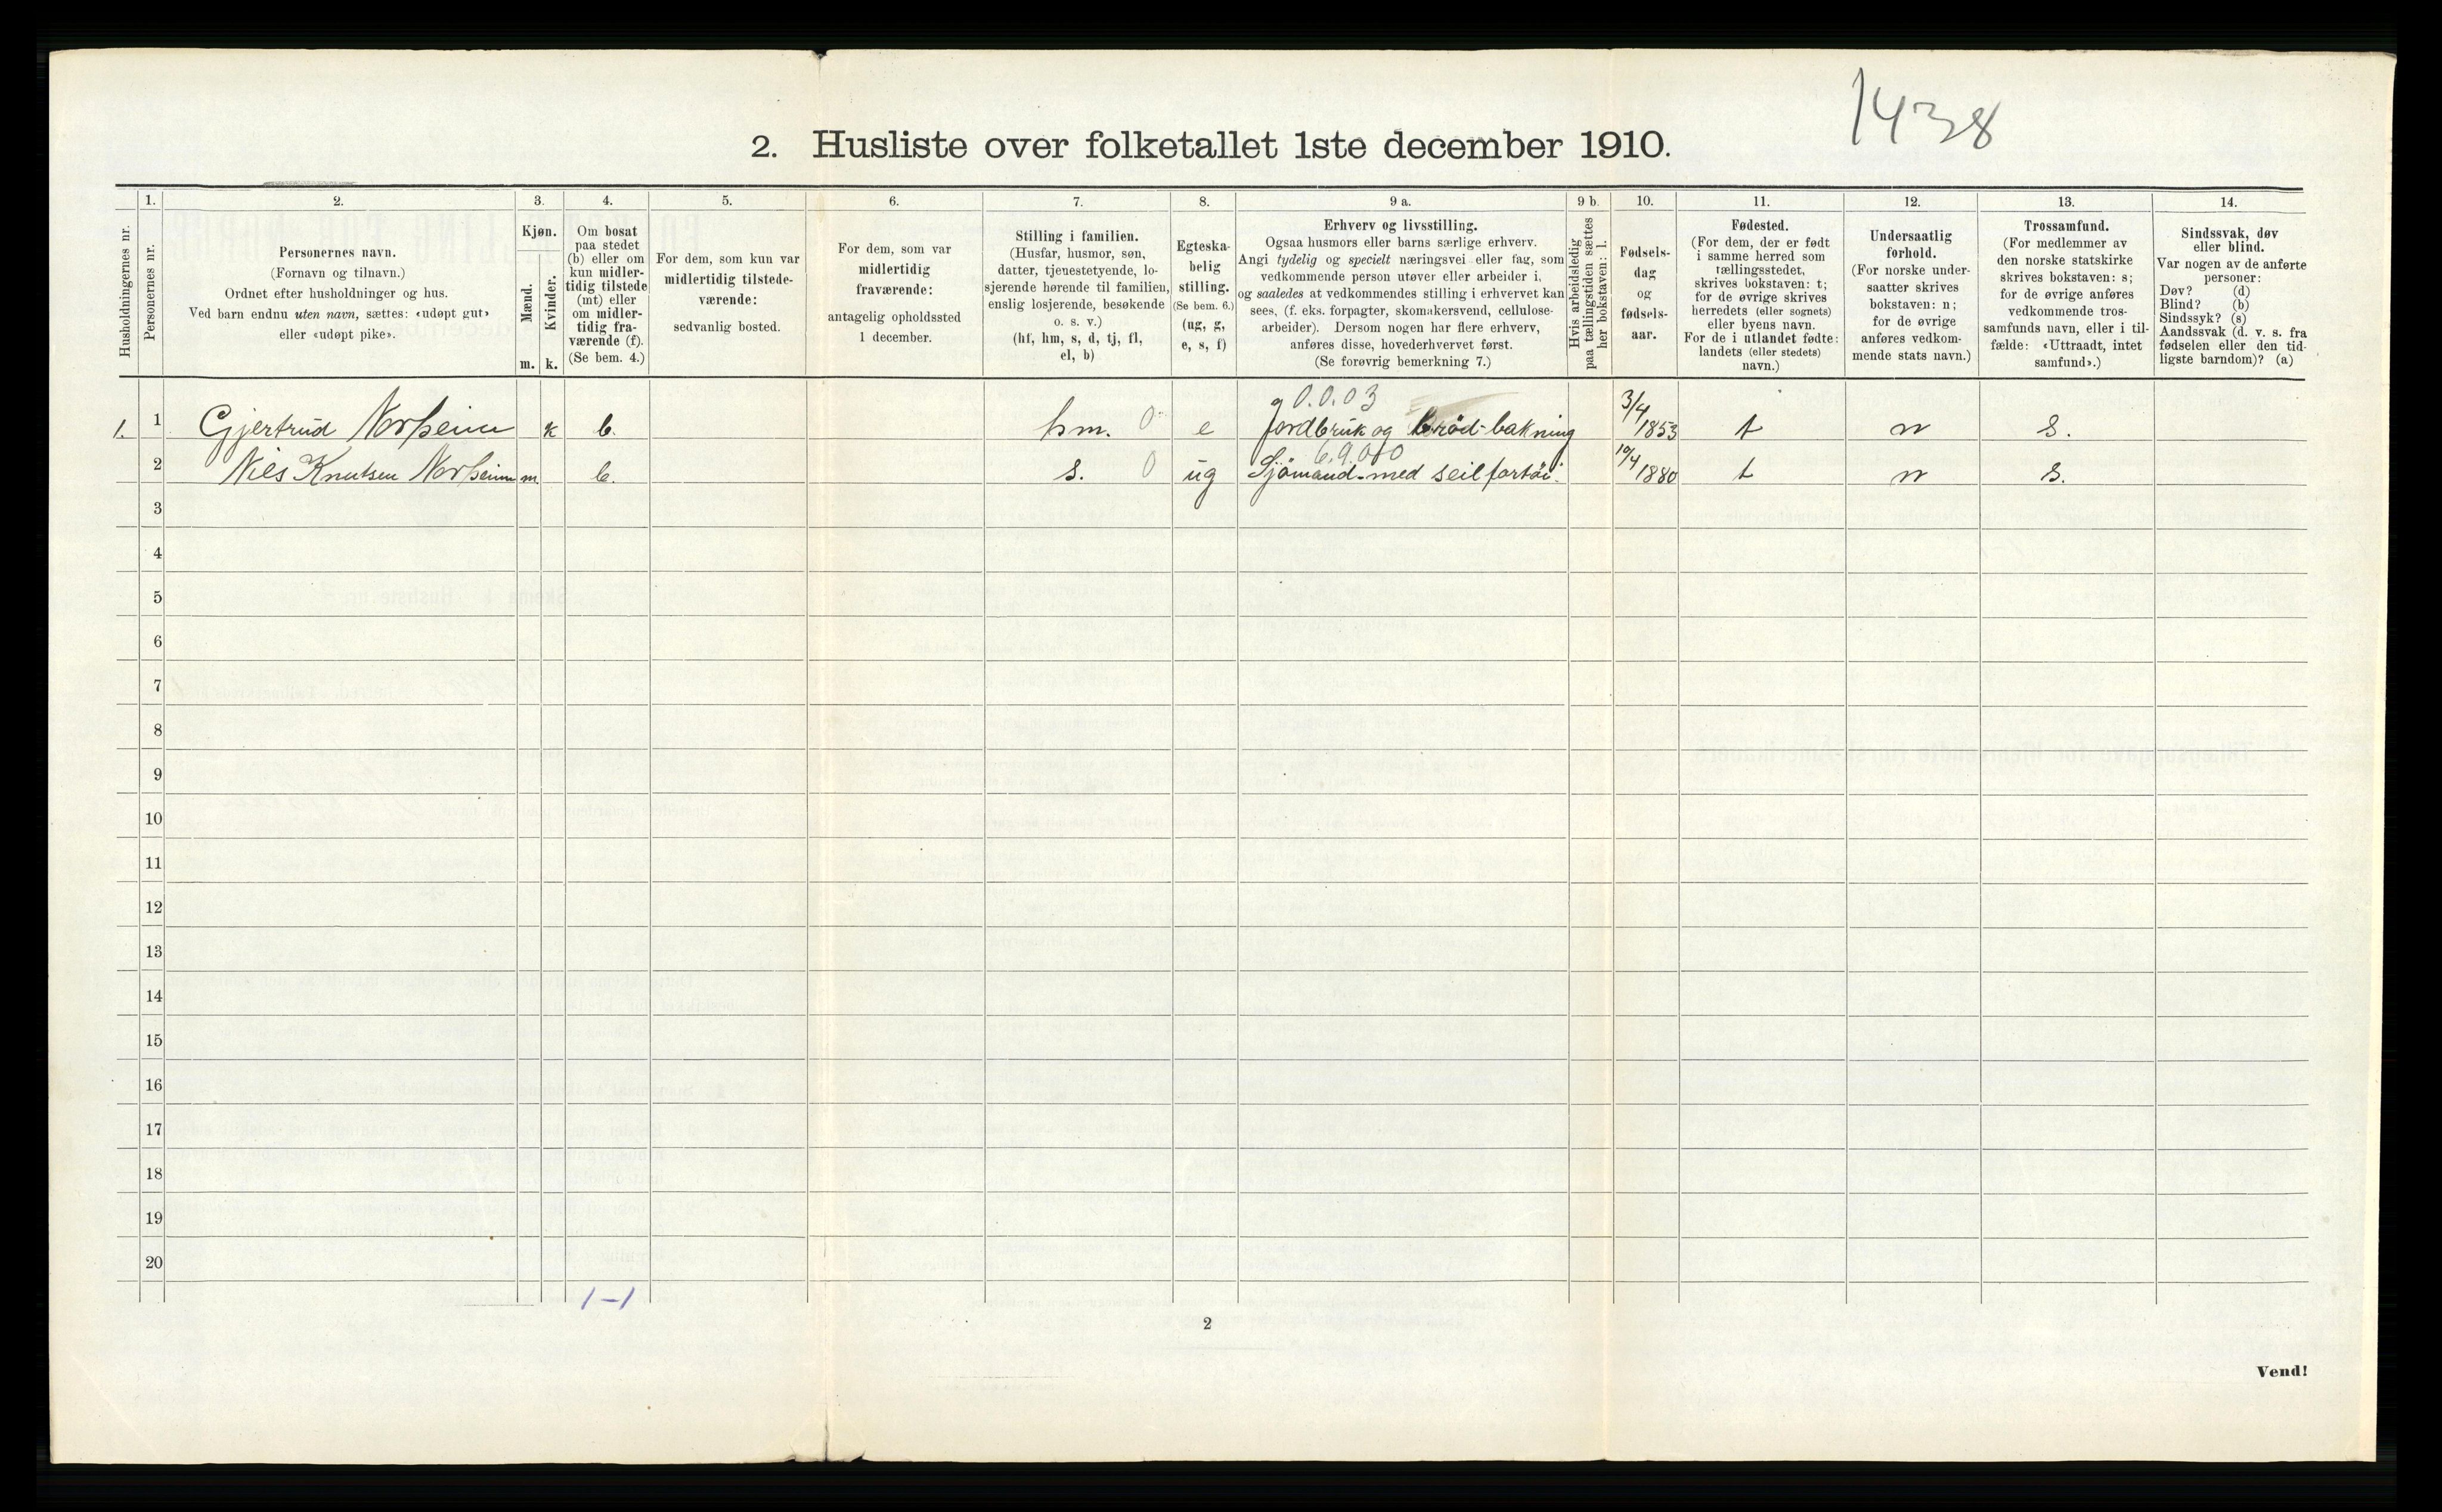 1438
2. Husliste over folketallet 1ste december 1910.
Husholdningernes nr.
1.
Personernes nr.
2.
Personernes navn.
(Fornavn og tilnavn.)
Ordnet efter husholdninger og hus.
Ved barn endnu uten navn, sættes: «udøpt gut»
eller «udøpt pike».
3.
Kjøn.
Mænd.
m.
Kvinder.
k.
4.
Om bosat
paa stedet
(b) eller om
kun midler-
tidig tilstede
(mt) eller
om midler-
tidig fra-
værende (f).
(Se bem. 4.)
5.
For dem, som kun var
midlertidig tilstede-
værende:
sedvanlig bosted.
6.
For dem, som var
midlertidig
fraværende:
antagelig opholdssted
1 december.
7.
Stilling i familien.
(Husfar, husmor, søn,
datter, tjenestetyende, lo-
sjerende hørende til familien,
enslig losjerende, besøkende
o. s. v.)
(hf, hm, s, d, tj, fl,
el, b)
8.
Egteska-
belig
stilling.
(Se bem. 6.)
(ug, g,
e, s, f)
9 a.
Erhverv og livsstilling.
Ogsaa husmors eller barns særlige erhverv.
Angi tydelig og specielt næringsvei eller fag, som
vedkommende person utøver eller arbeider i,
og saaledes at vedkommendes stilling i erhvervet kan
sees, (f. eks. forpagter, skomakersvend, cellulose-
arbeider). Dersom nogen har flere erhverv,
anføres disse, hovederhvervet først.
(Se forøvrig bemerkning 7.)
9 b.
Hvis arbeidsledig
paa tællingstiden sættes
her bokstaven: l.
10.
Fødsels-
dag
og
fødsels-
aar.
11.
Fødested.
(For dem, der er født
i samme herred som
tællingsstedet,
skrives bokstaven: t;
for de øvrige skrives
herredets (eller sognets)
eller byens navn.
For de i utlandet fødte:
landets (eller stedets)
navn.)
12.
Undersaatlig
forhold.
(For norske under-
saatter skrives
bokstaven: n;
for de øvrige
anføres vedkom-
mende stats navn.)
13.
Trossamfund.
(For medlemmer av
den norske statskirke
skrives bokstaven: s;
for de øvrige anføres
vedkommende tros-
samfunds navn, eller i til-
fælde: «Uttraadt, intet
samfund».)
14.
Sindssvak, døv
eller blind.
Var nogen av de anførte
personer:
Døv? (d)
Blind? (b)
Sindssyk? (s)
Aandssvak (d. v. s. fra
fødselen eller den tid-
ligste barndom)? (a)
0.0.03
1. 1 Gjertrud Norheim k b. hm. 0 e Jordbruk og brød-bakning 3/4 1853 t n s.
6.9.010
2 Niels Knutsen Norheim m b. s. 0 ug Sjømand med seilfartøi. 10/4 1880 t n s.
3
4
5
6
7
8
9
10
11
12
13
14
15
16
17
18
19
20
1-1
2
Vend!